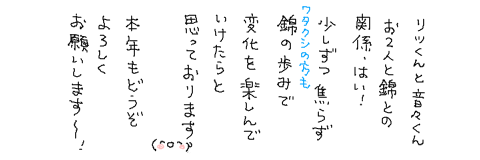 リッくんと音々くん
お2人と錦との
関係、はい!
少しずつ焦らず
ワタクシの方も
錦の歩みで
変化を楽しんで
いけたらと
思っております
本年もどうぞ
よろしく
お願いします〜!